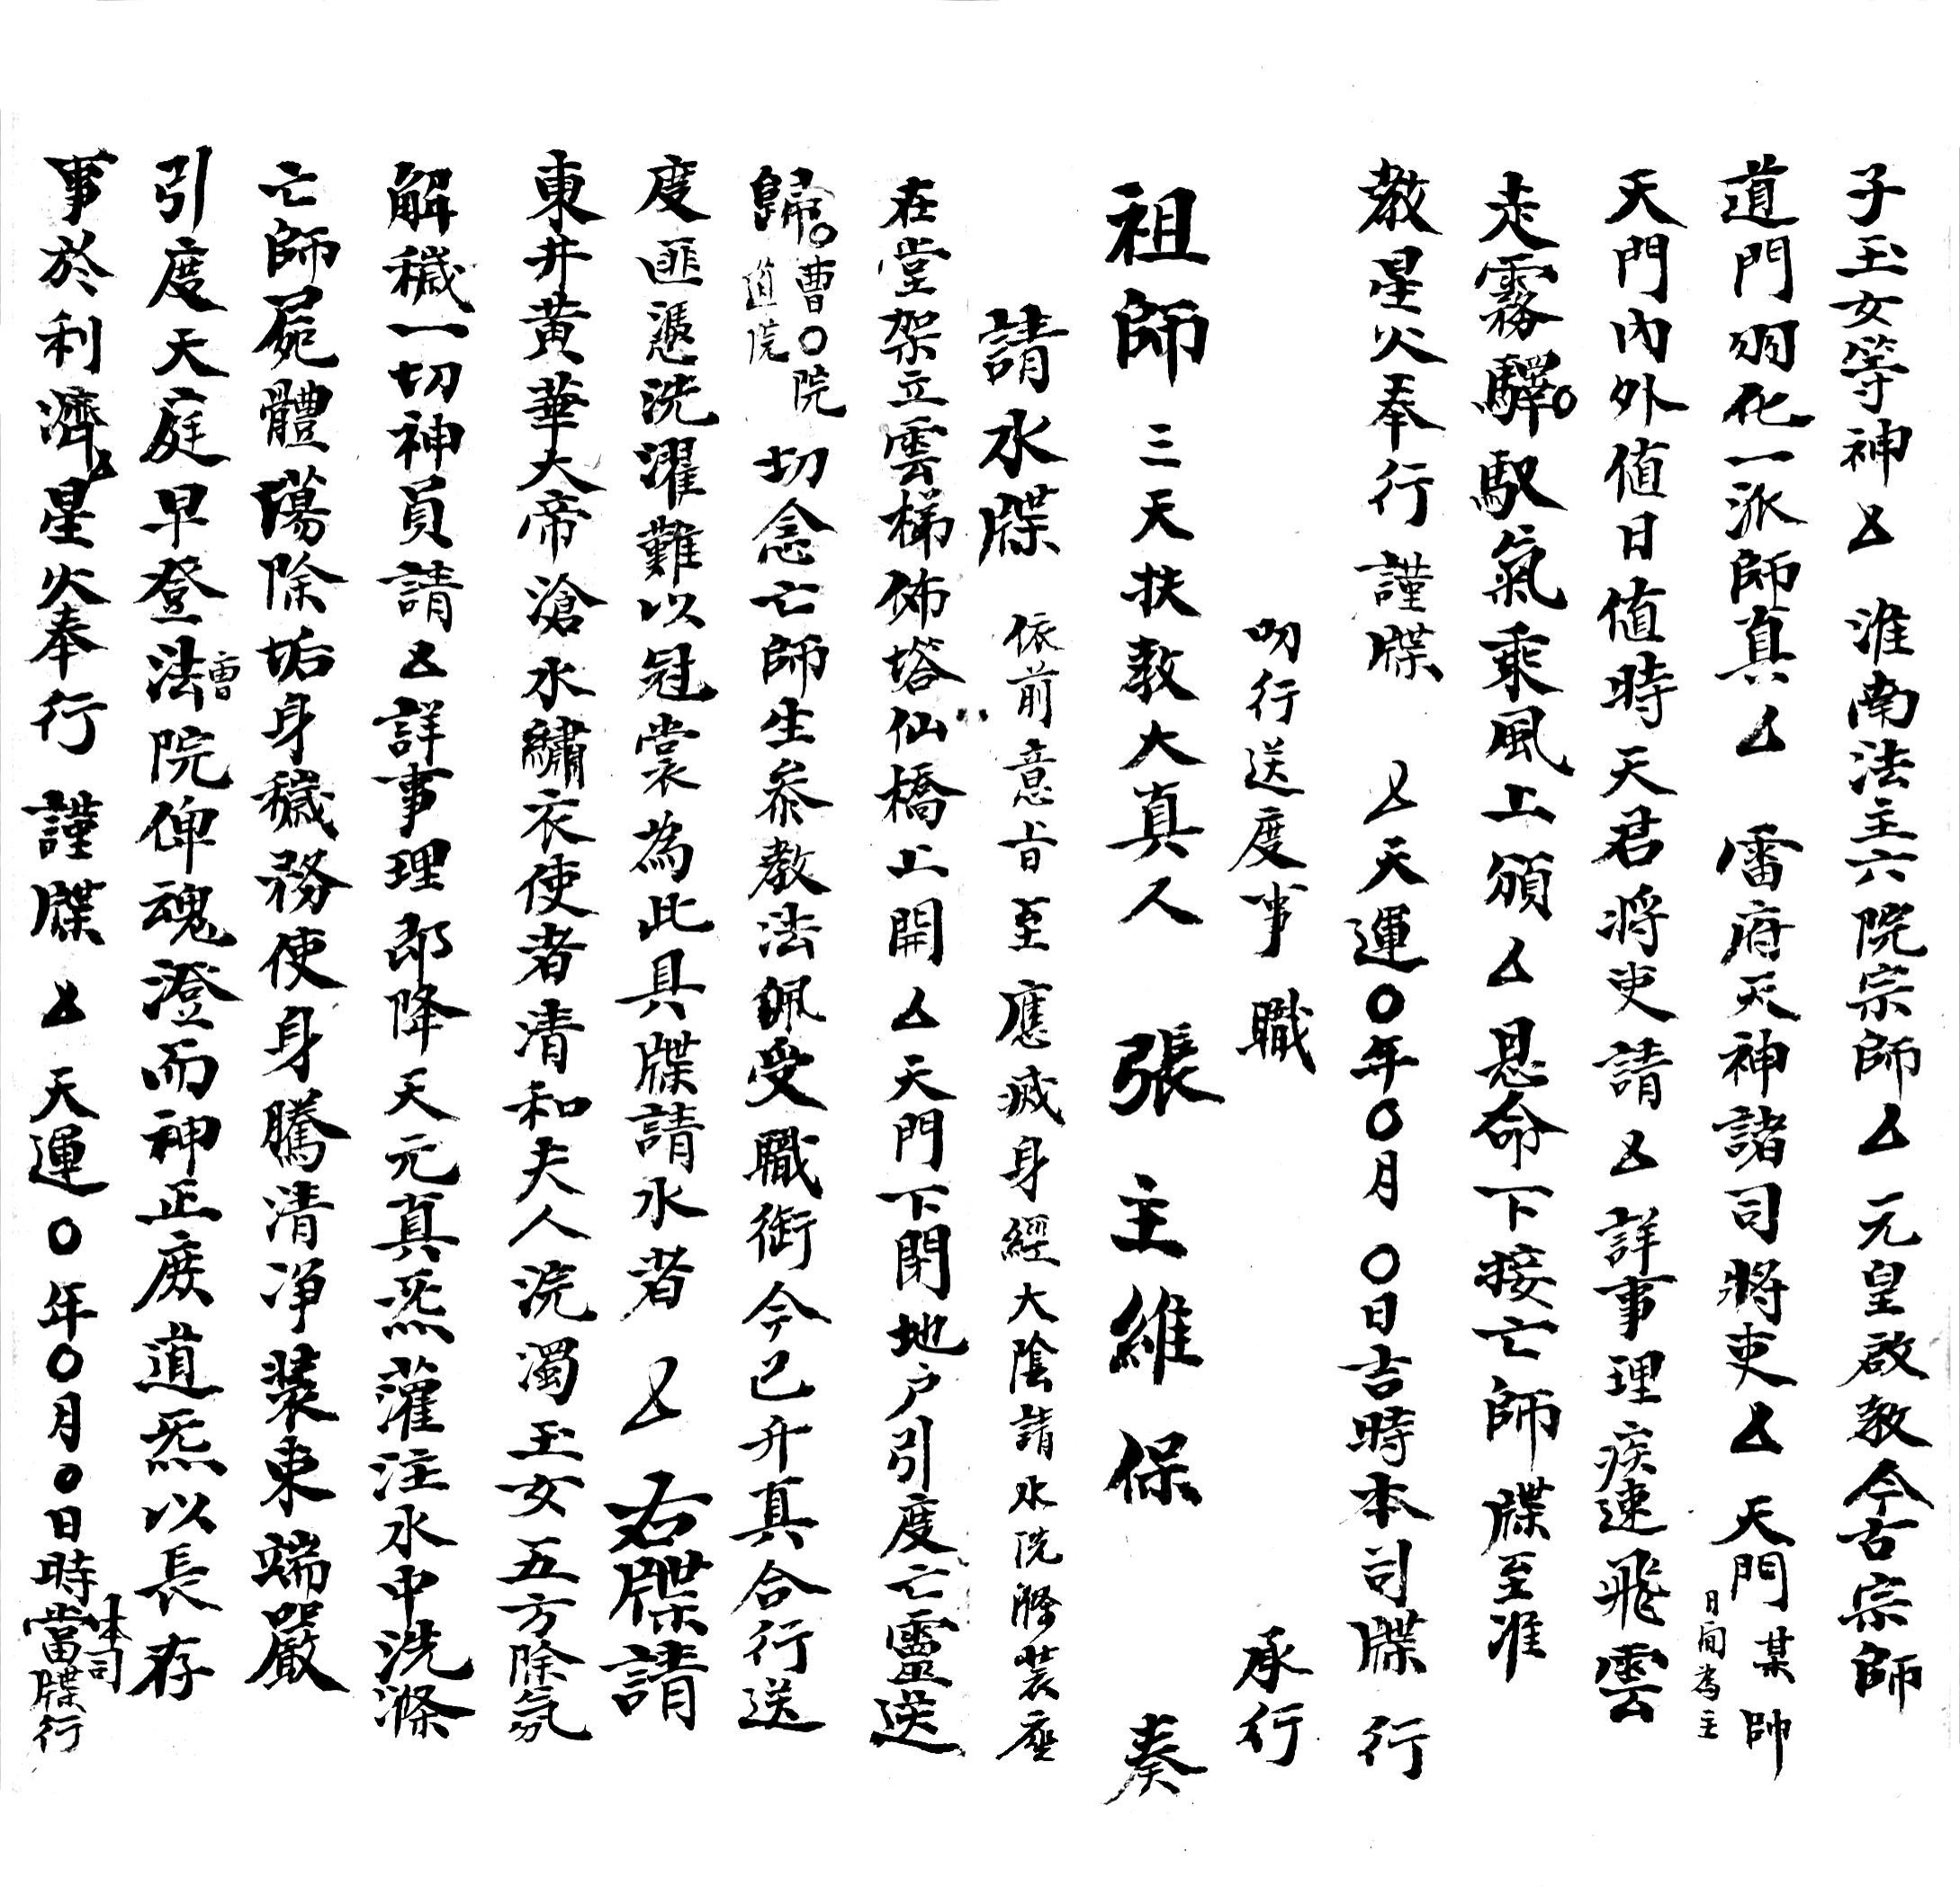 子玉女等神△　淮南法主六院宗師△　元皇啟教今古宗師
道門羽化一派師真△　雷府天神諸司將吏△　天門某帥日間為主
天門內外值日值時天君將吏請△詳事理疾速飛雲
走霧驛〇馭氣乘風上頒△恩命下接亡師牒至准
教星火奉行謹牒　△天運〇年〇月〇日吉時本司牒行
叨行送度事　職　承行
祖師三天扶教大真人　張　主維保　奏
請水牒　依前意旨至應滅身經大陰請水洗滌裝座
在堂架立雲梯佈塔仙橋上開△天門下閉地户引度亡靈送
歸〇曹〇院道院切念亡師生叅教法佩受職銜今已升真合行送
度匪憑洗濯難以冠裳為此具牒請水者　△　右牒請
東井黃華大帝滄水繡衣使者清和夫人浣濁玉女五方除氛
解穢一切神員請△詳事理即降天元真炁灌注水中洗滌
亡師屍體蕩除垢身穢務使身騰清凈裝束端嚴
引度天庭早登法曹院俾魂澄而神正庶道炁以長存
事於利濟△星火奉行　謹牒　△　天運〇年〇月〇日時本司當牒行